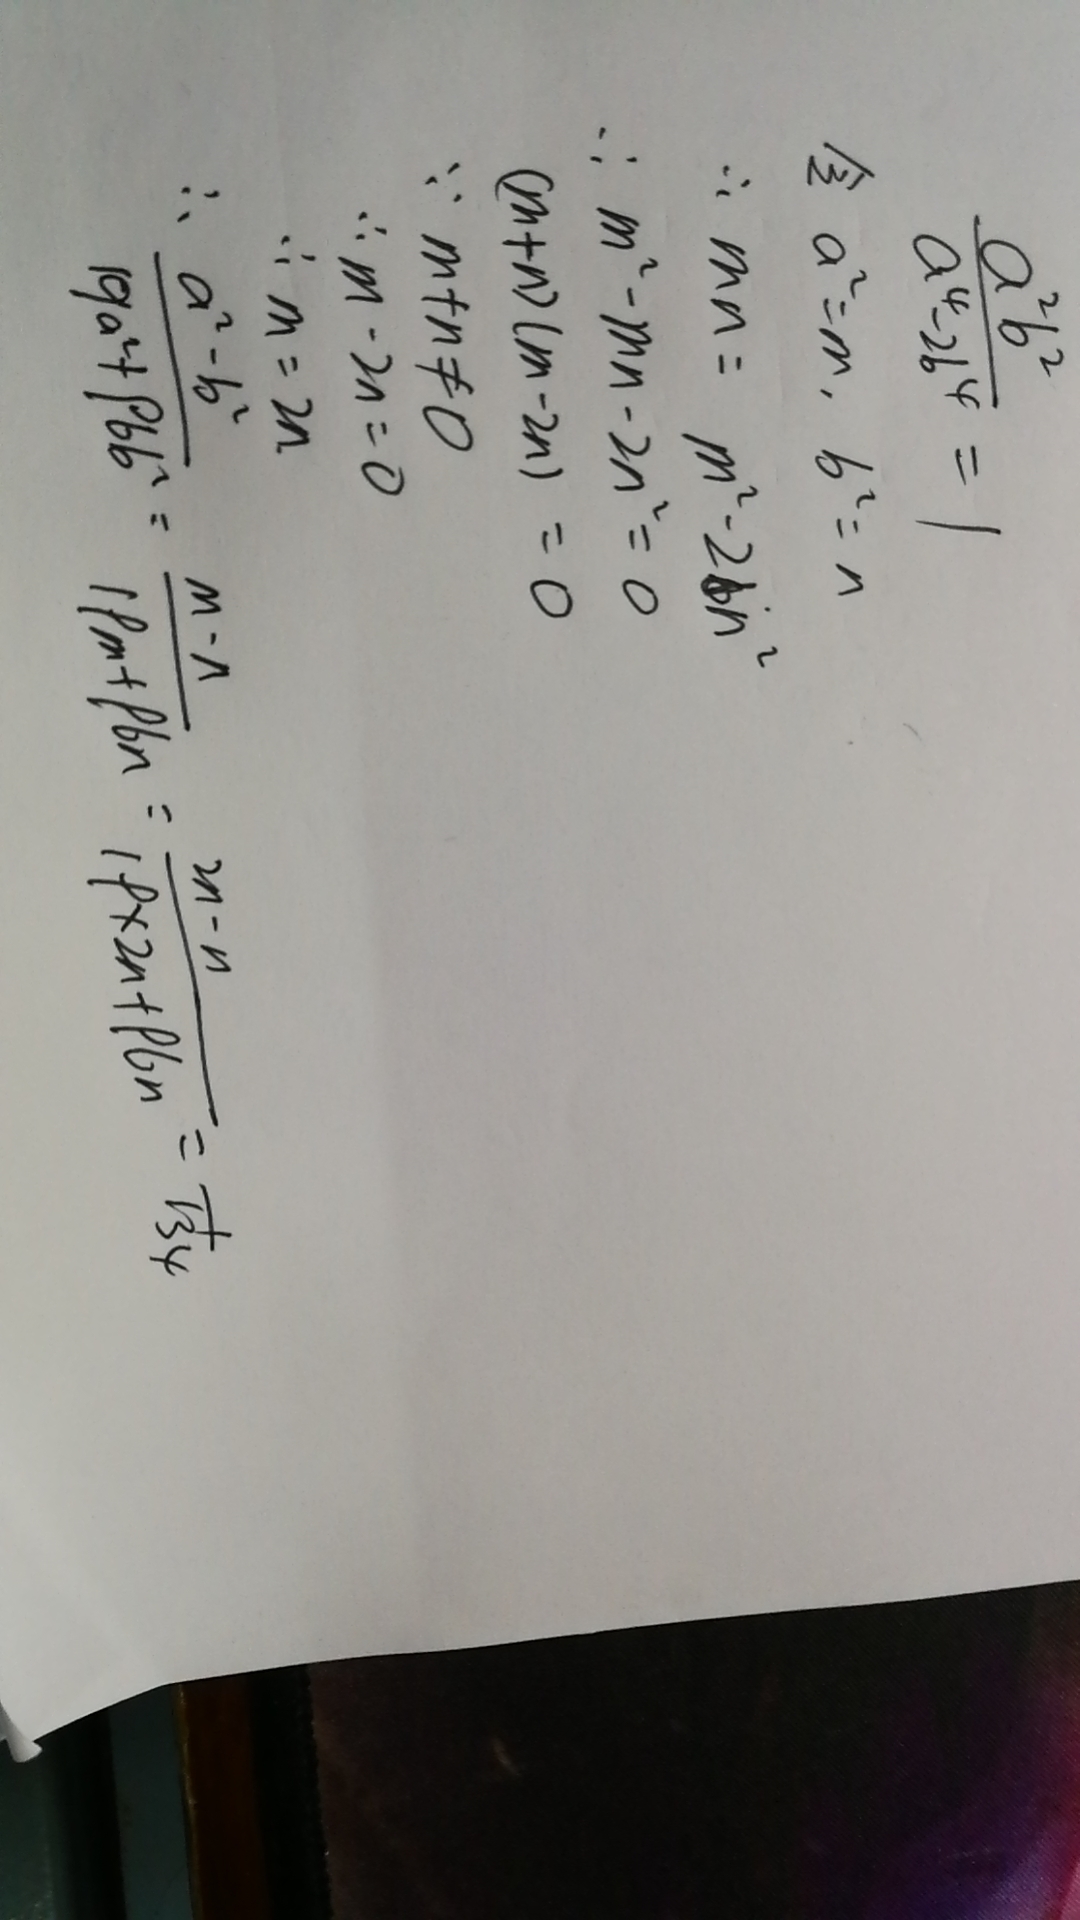 a²b²/(a⁴-2b⁴) = 1
令 a²=m, b²=n
∴ mn = m²-2n²
∴ m²-mn-2n²=0
(m+n)(m-2n)=0
∵ m+n≠0
∴ m-2n=0
∴ m=2n
∴ (a²-b²)/(19a²+96b²) = (m-n)/(19m+96n) = (2n-n)/(19×2n+96n) = 1/134